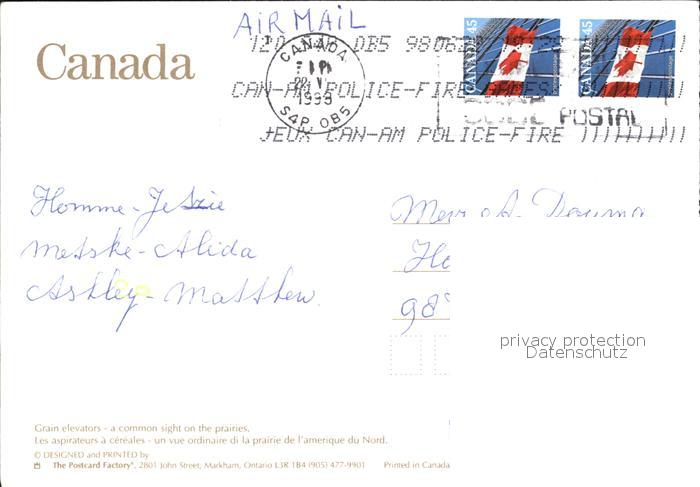 AIR MAIL
Canada
CANADA 45
CANADA 45
CANADA
PM
1998
S4P 0B5
CAN-AM POLICE-FIRE
JEUX CAN-AM POLICE-FIRE
POSTAL
Homme-Jetzie
Metske-Alida
Ashley-Matthew
98
privacy protection
Datenschutz
Grain elevators - a common sight on the prairies.
Les aspirateurs à céréales - un vue ordinaire di la prairie de l'amerique du Nord.
© DESIGNED and PRINTED by
The Postcard Factory®, 2801 John Street, Markham, Ontario L3R 1B4 (905) 477-9901 Printed in Canada